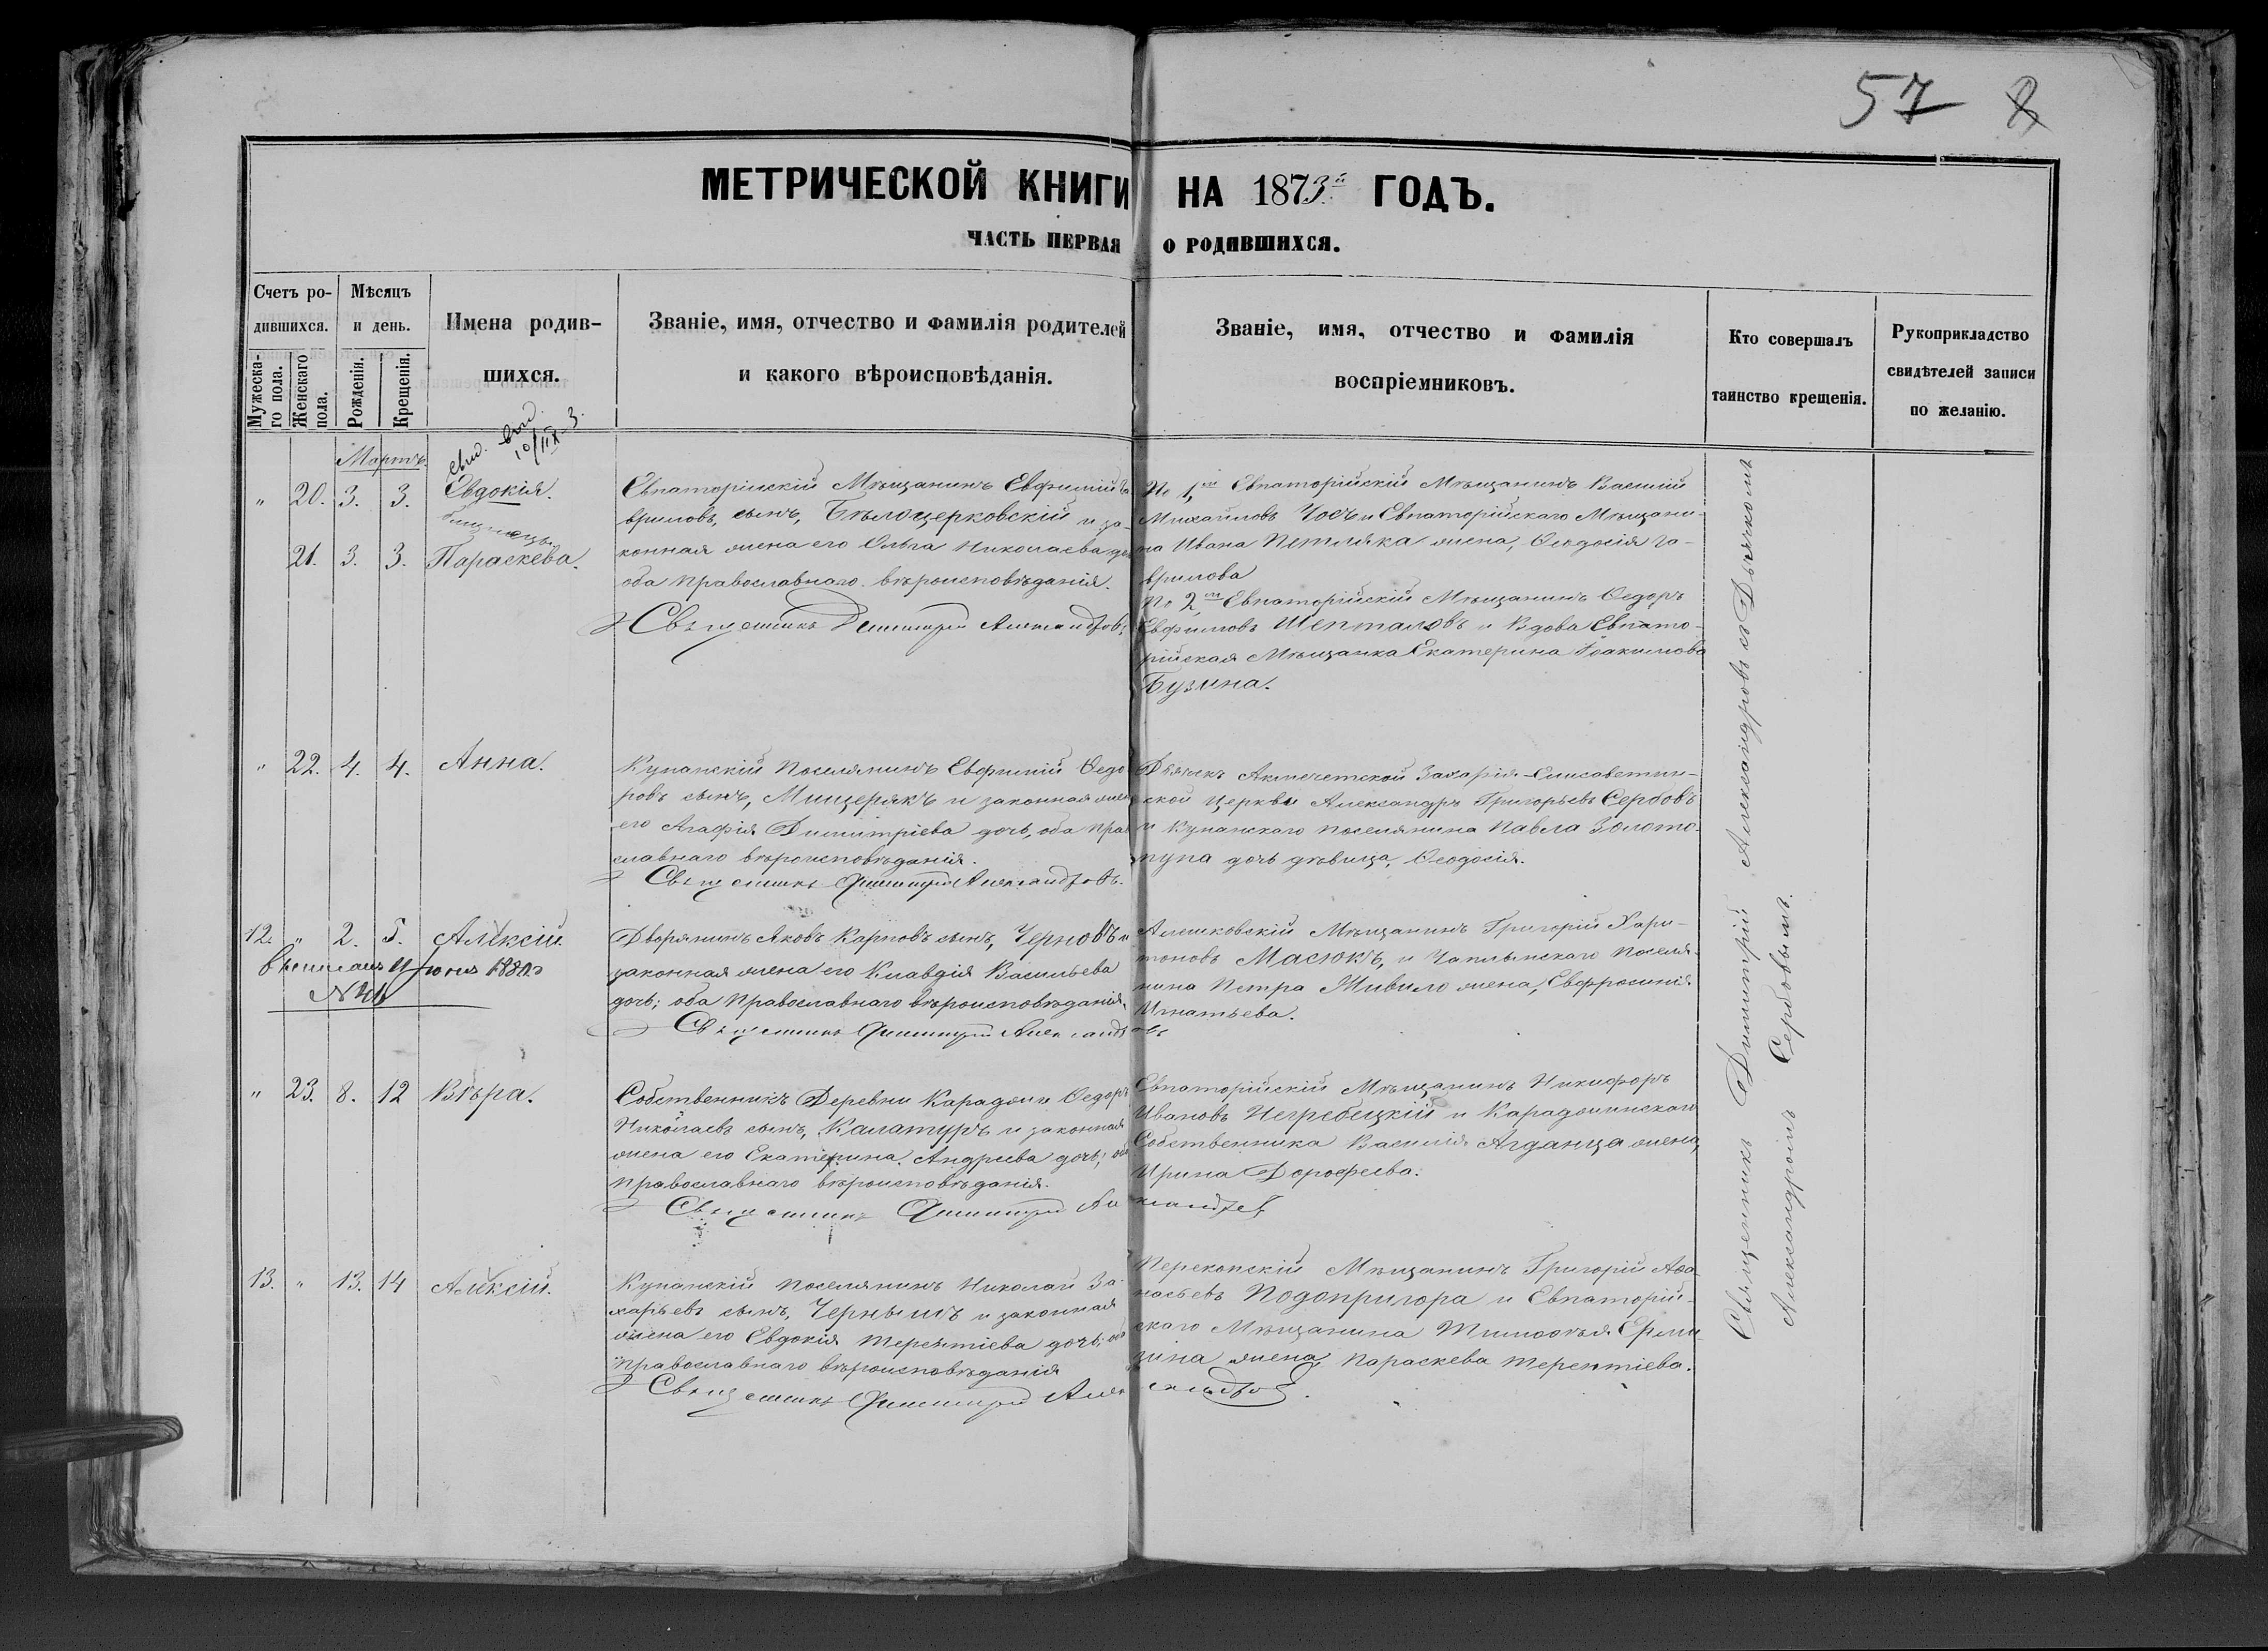 57 8
МЕТРИЧЕСКОЙ КНИГИ НА 1873й ГОДЪ.
ЧАСТЬ ПЕРВАЯ О РОДИВШИХСЯ.
Счетъ ро-
дившихся.
Мужеска-
го пола.
Женскаго
пола.
Мѣсяцъ
и день.
Рожденія.
Крещенія.
Имена родив-
шихся.
Званіе, имя, отчество и фамилія родителей
и какого вѣроисповѣданія.
Званіе, имя, отчество и фамилія
воспріемниковъ.
Кто совершалъ
таинство крещенія.
Рукоприкладство
свидѣтелей записи
по желанію.
Мартъ.
" 20. 3. 3. Евдокія.
близнецы
21. 3. 3. Параскева.
Евпаторійскій Мѣщанинъ Евфимій Га-
вриловъ сынъ, Бѣлоцерковскій и за-
конная жена его Ольга Николаева дочь
оба православнаго вѣроисповѣданія.
Священникъ Димитрій Александровъ
По 1й Евпаторійскій Мѣщанинъ Василій
Михайловъ Чосъ и Евпаторійскаго Мѣщани-
на Ивана Петляка жена, Ѳеодосія Га-
врилова
По 2й Евпаторійскій Мѣщанинъ Ѳедоръ
Евфимовъ Шепталовъ и Вдова Евпато-
рійская Мѣщанка Екатерина Іоакимова
Бузина.
" 22. 4. 4. Анна.
Кунанскій Поселянинъ Евфимій Ѳедо-
ровъ сынъ, Мищерякъ и законная жена
его Агафія Димитріева дочь, оба Право-
славнаго вѣроисповѣданія.
Священникъ Димитрій Александровъ.
Дьячекъ Акмечетской Захарія-Елисаветин-
ской Церкви Александръ Григорьевъ Сербовъ
и Кунанскаго поселянина Павла Золото-
пупа дочь дѣвица, Ѳеодосія.
12. " 2. 5. Алексій.
Іюня 1880
Дворянинъ Яковъ Карповъ сынъ, Черновъ и
законная жена его Клавдія Васильева
дочь; оба Православнаго вѣроисповѣданія.
Священникъ Димитрій Александровъ
Алешковскій Мѣщанинъ Григорій Хари-
тоновъ Масюкъ, и Чаплынскаго Поселя-
нина Петра Мивило жена, Евфросинія
Игнатьева.
" 23. 8. 12 Вѣра.
Собственникъ Деревни Караджи Ѳедоръ
Николаевъ сынъ, Калатуръ и законная
жена его Екатерина Андреева дочь; оба
православнаго вѣроисповѣданія.
Священникъ Димитрій Александровъ
Евпаторійскій Мѣщанинъ Никифоръ
Ивановъ Негребецкій и Караджинскаго
Собственника Василія Агданца жена,
Ирина Дорофеева.
13. " 13. 14 Алексій.
Кунанскій Поселянинъ Николай За-
харьевъ сынъ, Чернышъ и законная
жена его Евдокія Терентіева дочь, оба
православнаго вѣроисповѣданія
Священникъ Димитрій Александровъ.
Перекопскій Мѣщанинъ Григорій Аѳа-
насьевъ Подопригора и Евпаторій-
скаго Мѣщанина Тимоѳея Ерми-
зина жена, Параскева Терентіева.
Священникъ Димитрій Александровъ съ Дьячкомъ
Александромъ Сербовымъ.